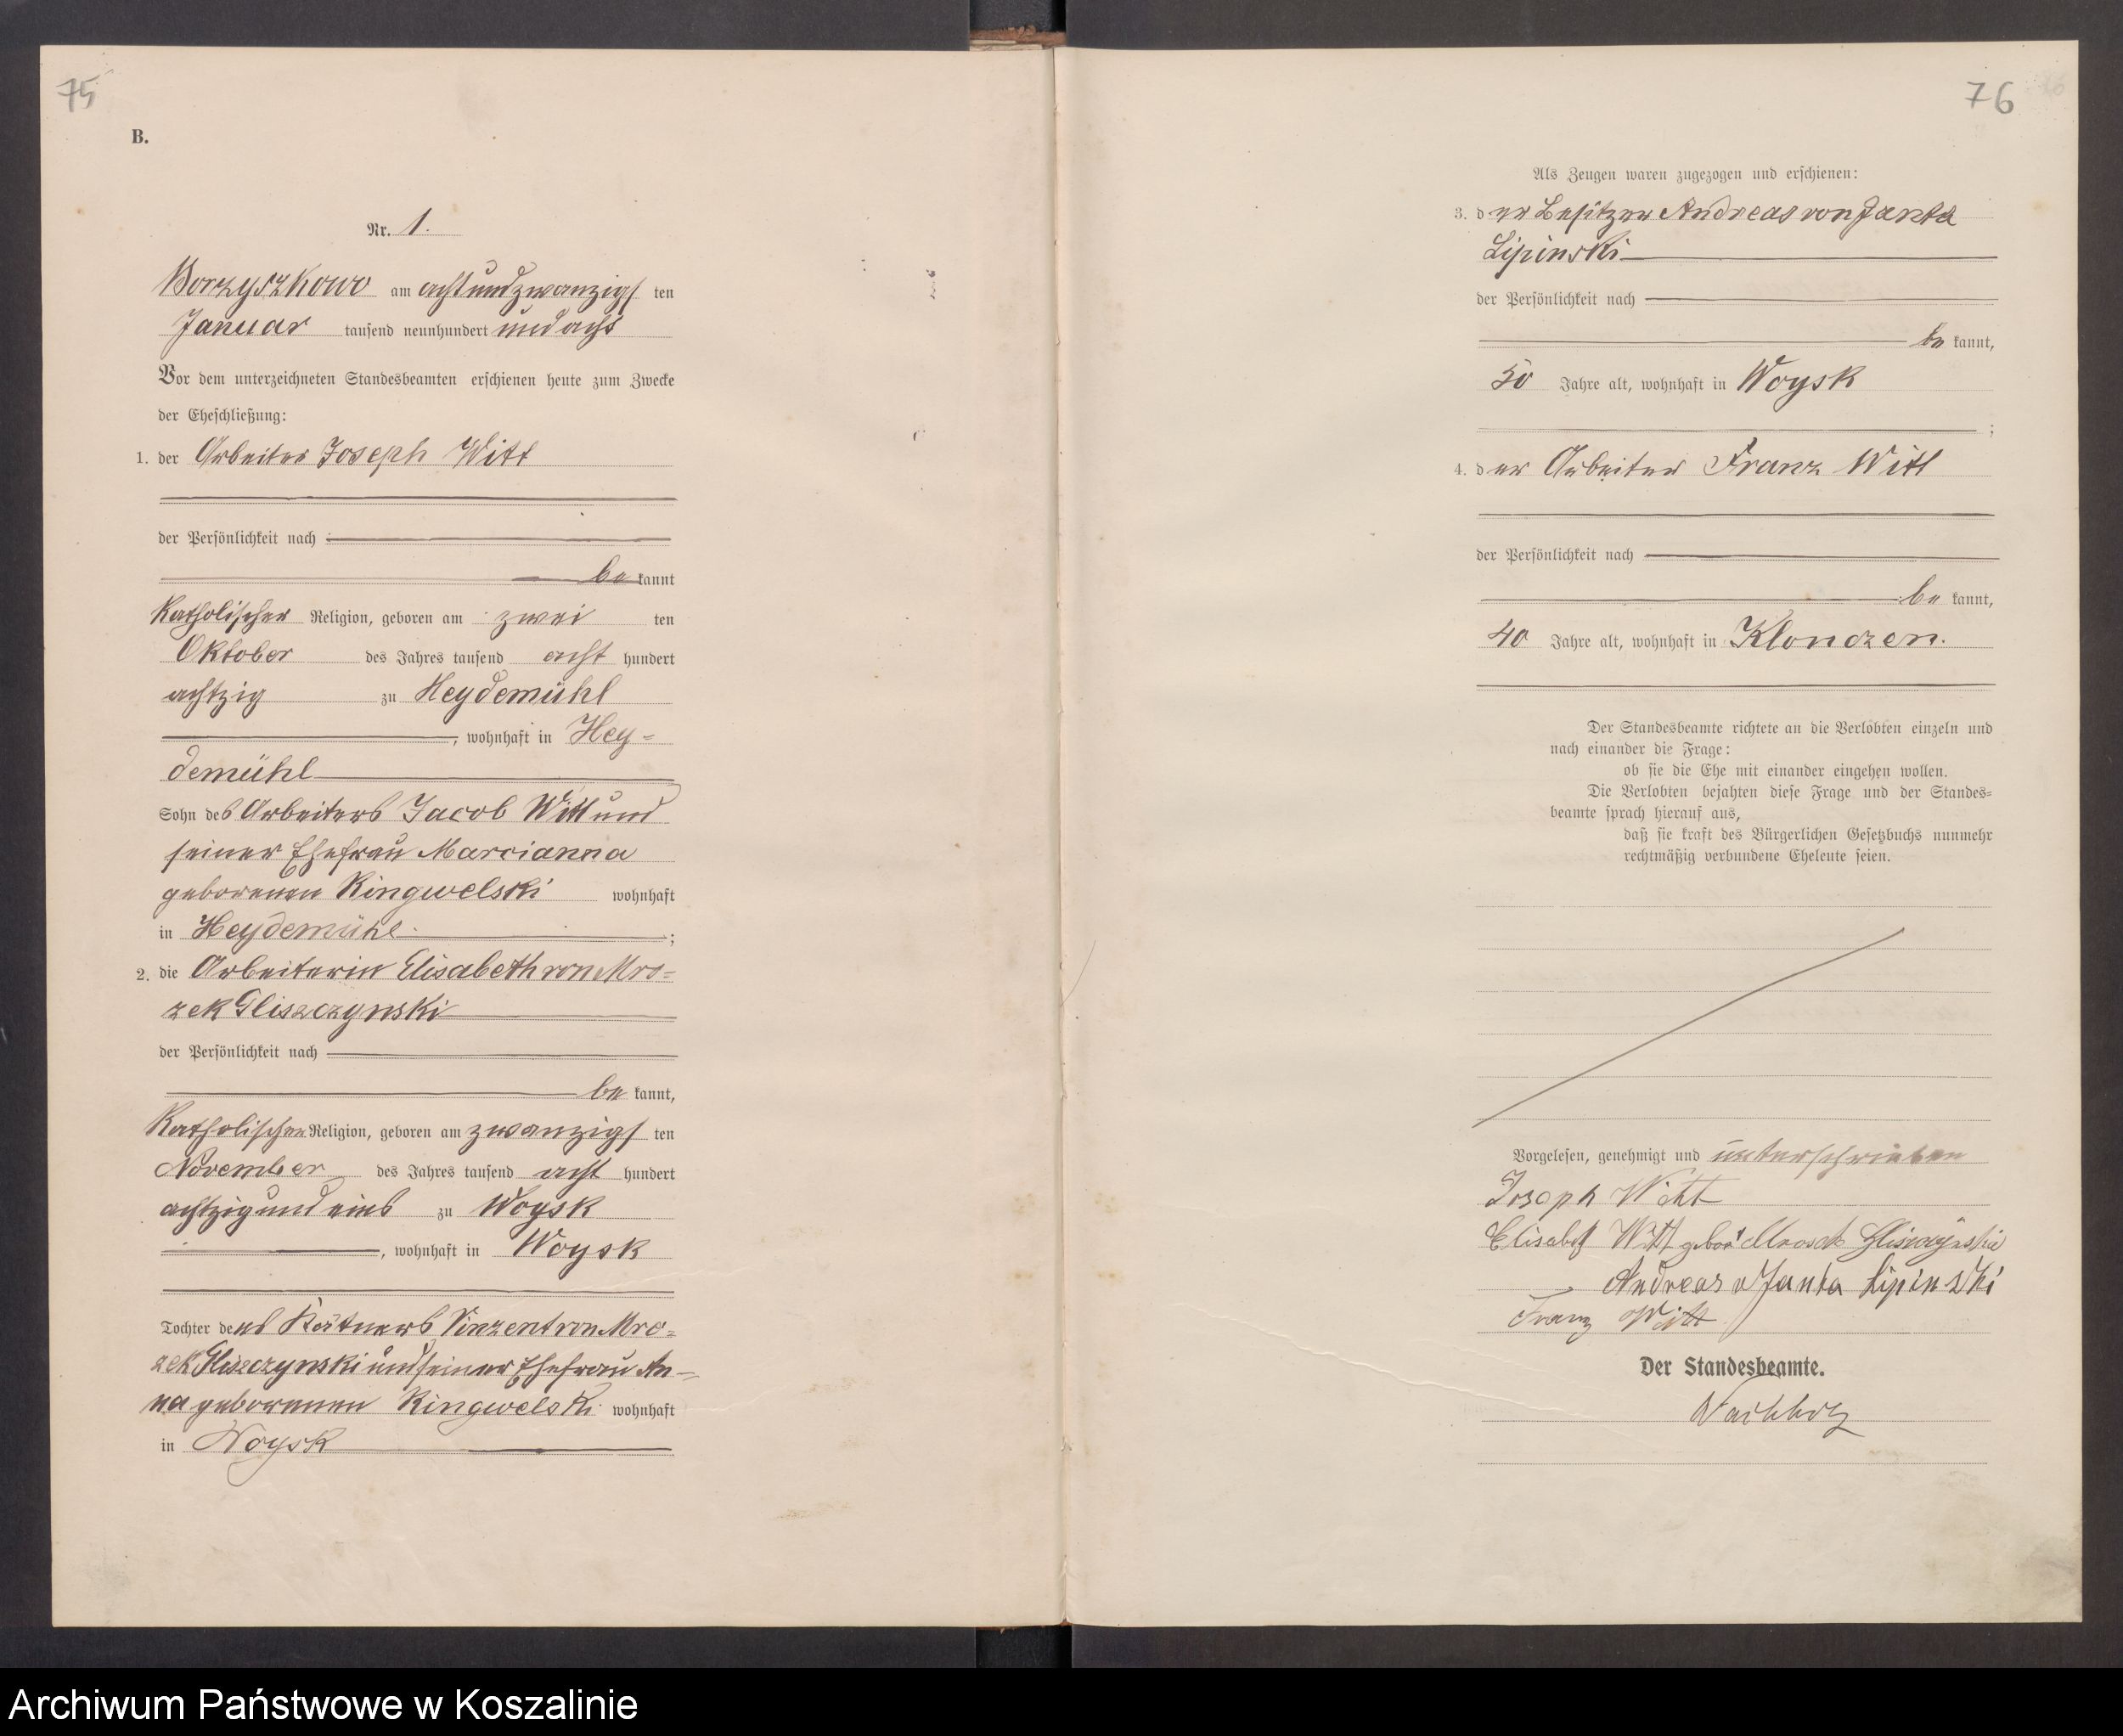 75
B.
Nr. 1.
Borzyszkowo am achtundzwanzigsten
Januar tausend neunhundert und acht
Vor dem unterzeichneten Standesbeamten erschienen heute zum Zwecke
der Eheschließung:
1. der Arbeiter Joseph Witt
der Persönlichkeit nach
be kannt
Katholischer Religion, geboren am zwei ten
Oktober des Jahres tausend acht hundert
achtzig zu Heydemühl
, wohnhaft in Hey=
demühl
Sohn des Arbeiters Jacob Witt und
seiner Ehefrau Marcianna
geborenen Ringwelski wohnhaft
in Heydemühl ;
2. die Arbeiterin Elisabeth von Mro=
zek Gliszczynski
der Persönlichkeit nach
be kannt,
Katholischer Religion, geboren am zwanzigsten
November des Jahres tausend acht hundert
achtzig und eins zu Woysk
, wohnhaft in Woysk
Tochter des Kätners Vinzent von Mro=
zek Gliszczynski und seiner Ehefrau An=
na geborenen Ringwelski wohnhaft
in Woysk
76
Als Zeugen waren zugezogen und erschienen:
3. der Besitzer Andreas von Janta
Lipinski
der Persönlichkeit nach
be kannt,
50 Jahre alt, wohnhaft in Woysk
;
4. der Arbeiter Franz Witt
der Persönlichkeit nach
be kannt,
40 Jahre alt, wohnhaft in Klonczen.
Der Standesbeamte richtete an die Verlobten einzeln und
nach einander die Frage:
ob sie die Ehe mit einander eingehen wollen.
Die Verlobten bejahten diese Frage und der Standes=
beamte sprach hierauf aus,
daß sie kraft des Bürgerlichen Gesetzbuchs nunmehr
rechtmäßig verbundene Eheleute seien.
Vorgelesen, genehmigt und unterschrieben
Joseph Witt
Elisabet Witt
Andreas v Janta Lipinski
Franz Witt
Der Standesbeamte.
Archiwum Państwowe w Koszalinie